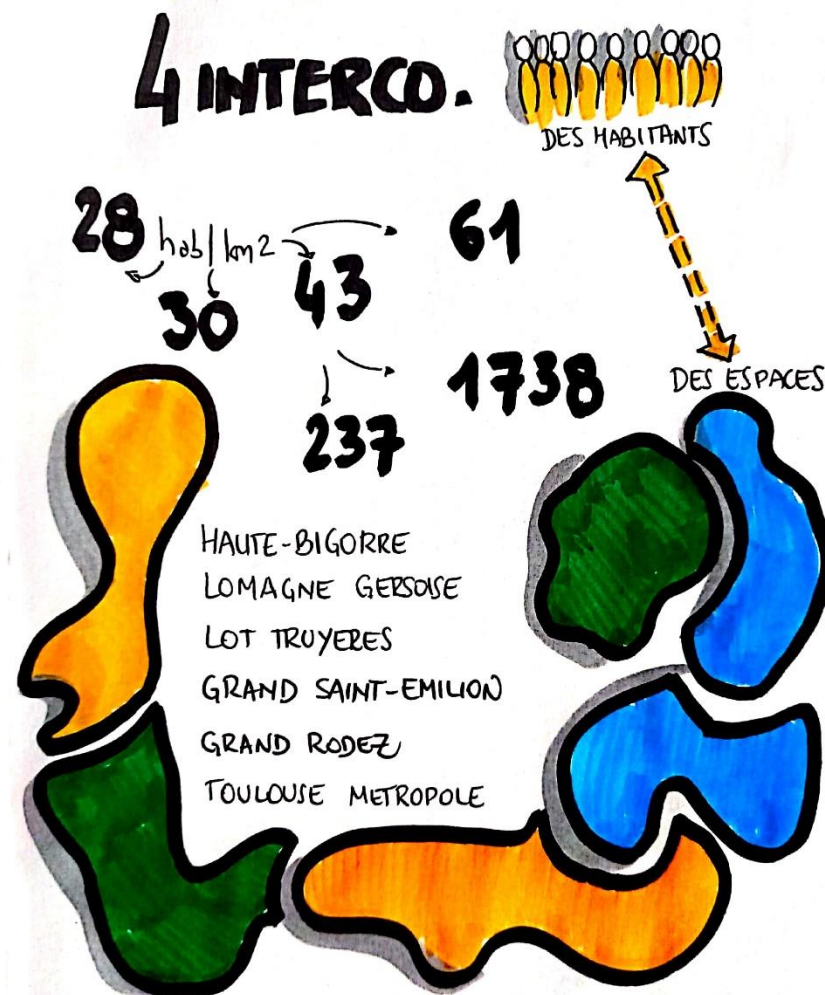 4 INTERCO.
DES HABITANTS
28 hab/km2 61
30 43
DES ESPACES
1738
237
HAUTE-BIGORRE
LOMAGNE GERSOISE
LOT TRUYERES
GRAND SAINT-EMILION
GRAND RODEZ
TOULOUSE METROPOLE